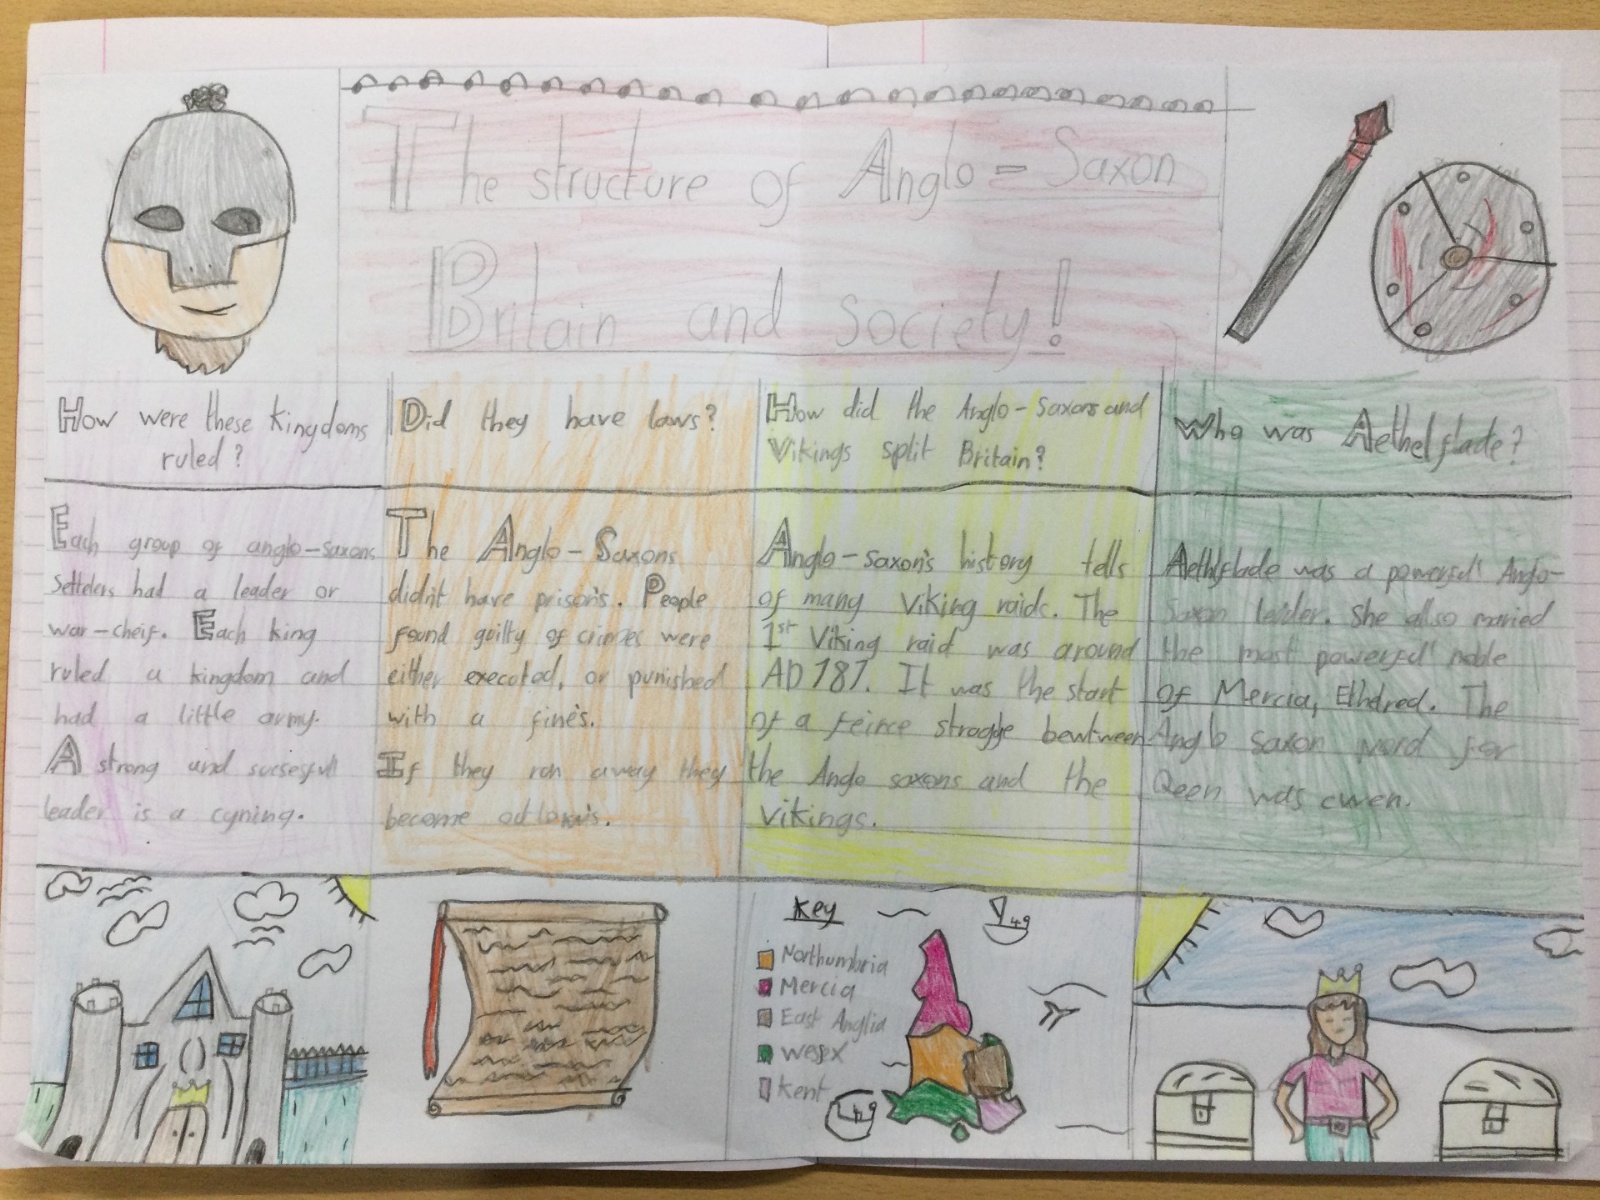 The structure of Anglo-Saxon
Britain and society!
How were these kingdoms
ruled?
Each group of anglo-saxons
settelers had a leader or
war-cheif. Each king
ruled a kingdom and
had a little army.
A strong and sucsesfull
leader is a cyning.
Did they have laws?
The Anglo-Saxons
did'nt have prison's. People
found goilty of crimes were
either execoted, or punished
with a fine's.
If they ran away they
become
How did the Anglo-Saxons and
Vikings split Britain?
Anglo-saxon's history tells
of many Viking raids. The
1st Viking raid was around
AD 787. It was the start
of a feirce stragge bewtween
the Anglo saxons and the
vikings.
Who was Aethelflade?
Aethlflade was a powerful Anglo-
Saxon leader. She also maried
the most powerful noble
of Mercia, Ethdred. The
Anglo saxon word for
Qeen was cwen.
Key
Northumbria
Mercia
East Anglia
Wesex
Kent
49
49